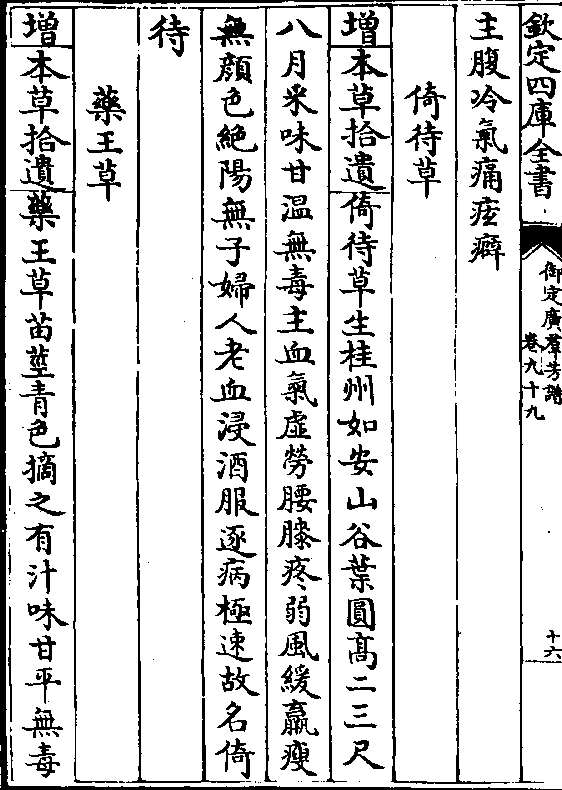 欽定四庫全書
御定廣羣芳譜
卷九十九
十六
主腹冷氣痛痃癖
倚待草
增本草拾遺倚待草生桂州如安山谷葉圓髙二三尺
八月采味甘溫無毒主血氣虛勞腰膝疼弱風緩羸瘦
無顔色絶陽無子婦人老血浸酒服逐病極速故名倚
待
藥王草
增本草拾遺藥王草苗莖青色摘之有汁味甘平無毒